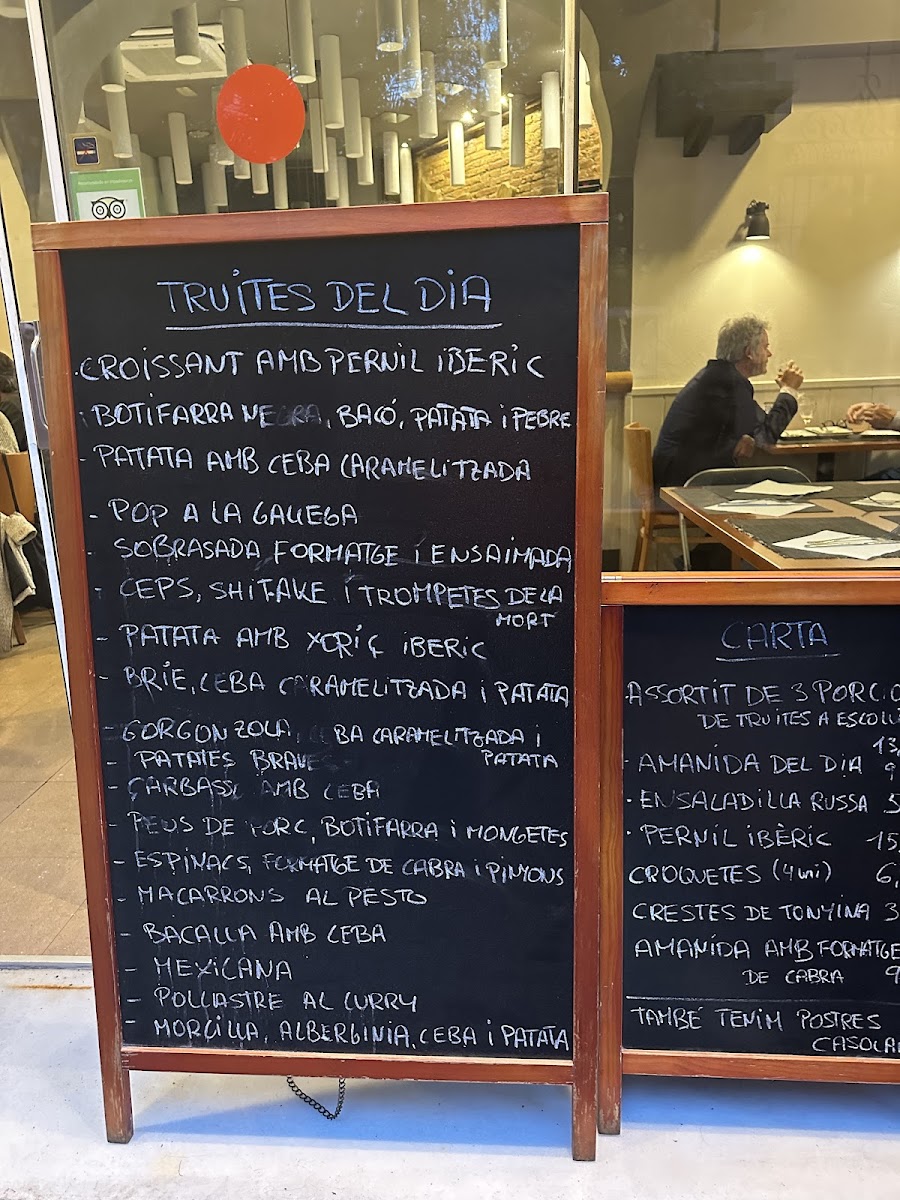 TRUITES DEL DIA
· CROISSANT AMB PERNIL IBERIC
· BOTIFARRA NEGRA, BACÓ, PATATA i PEBRE
- PATATA AMB CEBA CARAMELITZADA
- POP A LA GALLEGA
- SOBRASADA FORMATGE i ENSAIMADA
- CEPS, SHITAKE i TROMPETES DE LA
MORT
- PATATA AMB XORIÇ IBERIC
- BRIE, CEBA CARAMELITZADA i PATATA
- GORGONZOLA, BA CARAMELITZADA i
PATATA
- PATATES BRAVES
- CARBASSÓ AMB CEBA
- PEUS DE PORC, BOTIFARRA i MONGETES
- ESPINACS, FORMATGE DE CABRA i PINYONS
- MACARRONS AL PESTO
- BACALLA AMB CEBA
- MEXICANA
- POLLASTRE AL CURRY
- MORCILLA, ALBERGINIA, CEBA i PATATA
CARTA
ASSORTIT DE 3 PORC.
DE TRUITES A ESCOLL
13,
- AMANIDA DEL DIA 9
· ENSALADILLA RUSSA 5
· PERNIL IBÈRIC 15,
CROQUETES (4 uni) 6,
CRESTES DE TONYINA 3
AMANIDA AMB FORMATGE
DE CABRA 9
TAMBÉ TENIM POSTRES
CASOLA